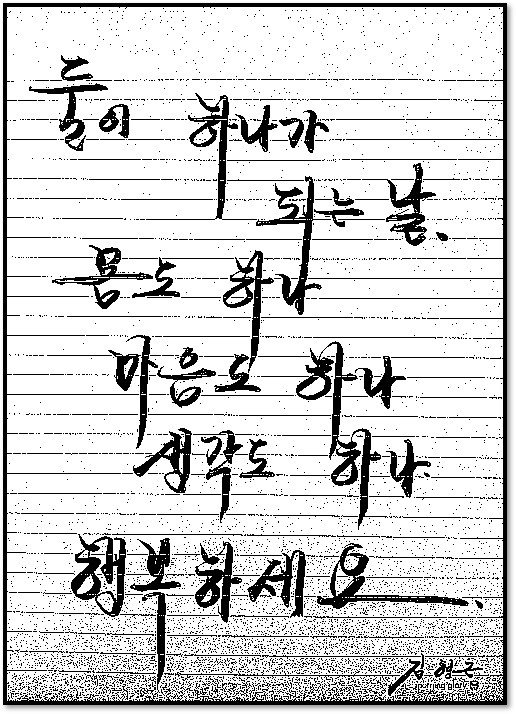 둘이 하나가
되는 날.
몸도 하나
마음도 하나
생각도 하나.
행복하세요.
김형근